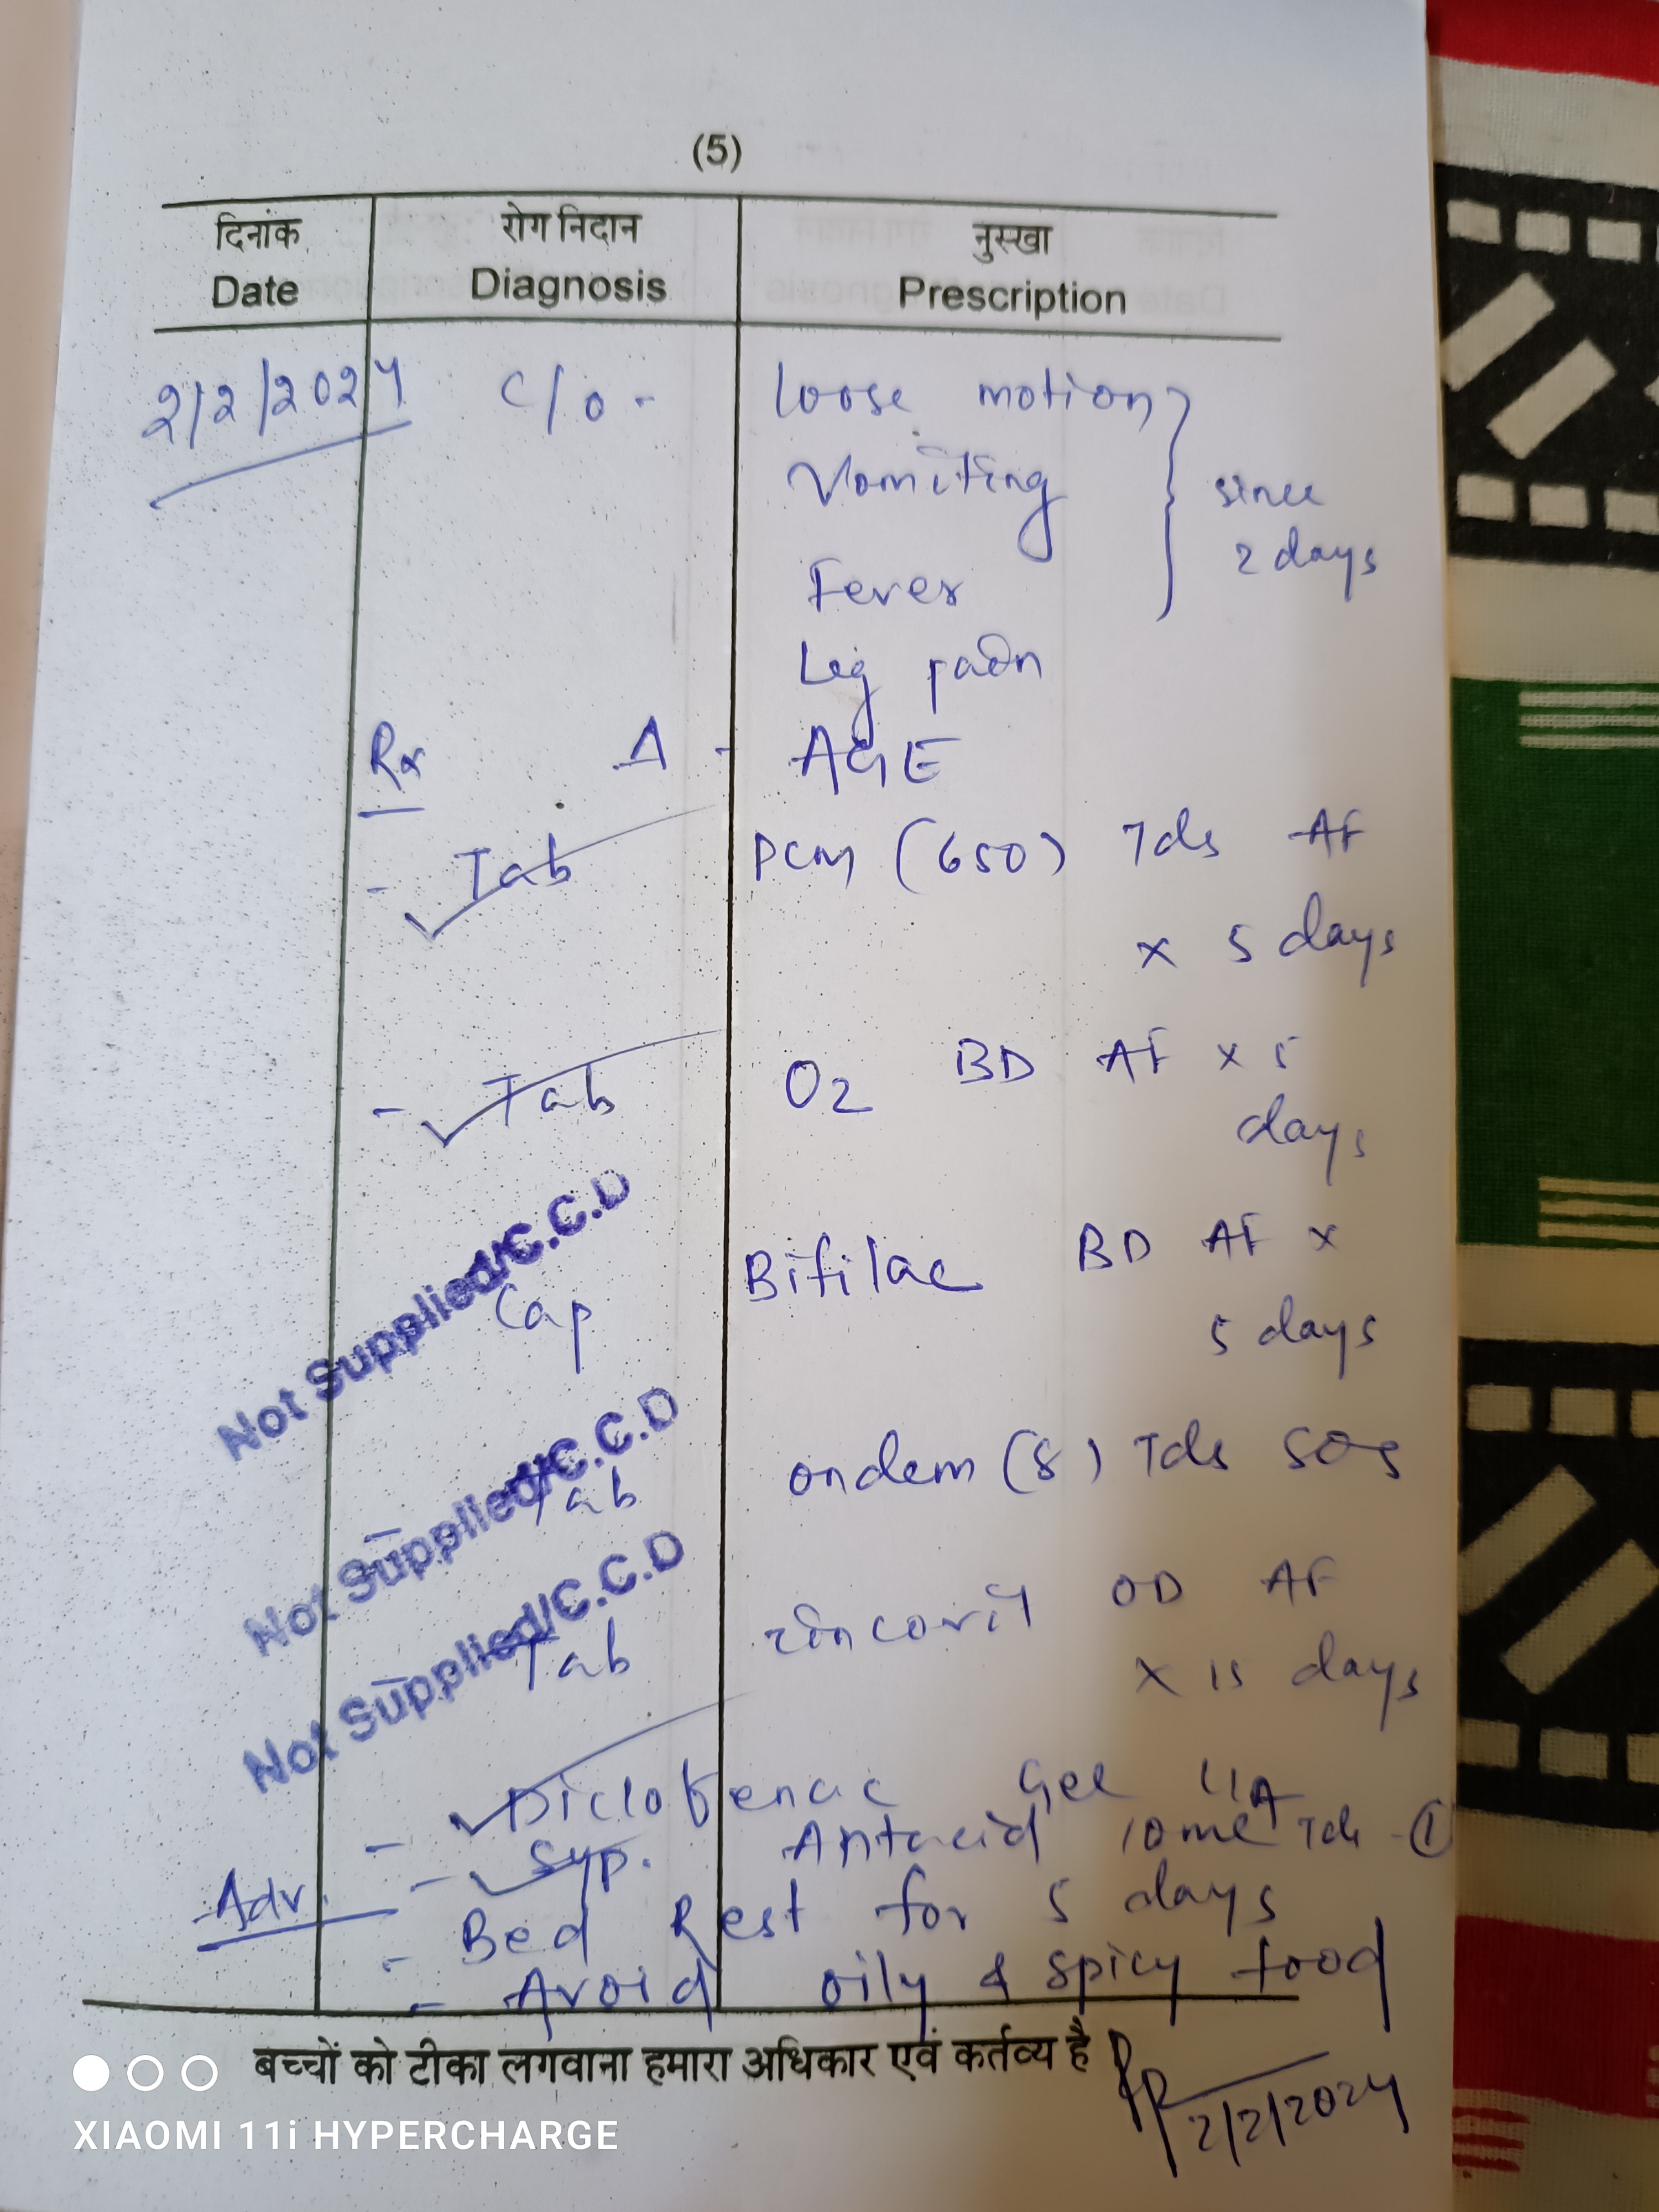 (5)
दिनांक रोग निदान नुस्खा
Date Diagnosis Prescription
2/2/2024 C/o - Loose motion
Vomiting since
Fever 2 days
Leg pain
Rx Δ - AGE
- Tab PCM (650) Tds AF
x 5 days
- Tab O2 BD AF x 5
days
Not Supplied/C.C.D
Cap Bifilac BD AF x
5 days
Not Supplied/C.C.D
- Tab ondem (8) Tds SOS
Not Supplied/C.C.D
- Tab zincovit OD AF
x 15 days
- Diclofenac Gel L/A
- Syp. Antacid 10ml Tds - ①
Adv. - Bed Rest for 5 days
- Avoid oily & spicy food
बच्चों को टीका लगवाना हमारा अधिकार एवं कर्तव्य है
2/2/2024
XIAOMI 11i HYPERCHARGE